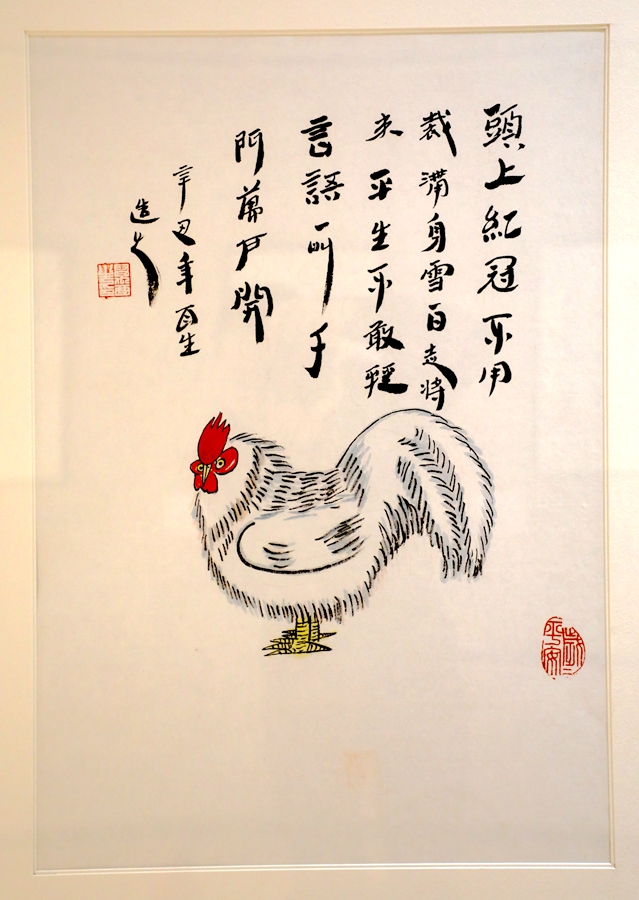 頭上紅冠不用
裁滿身雪白走將
来平生不敢輕
言語一叫千
門萬戶開
辛丑年
造
歲平安